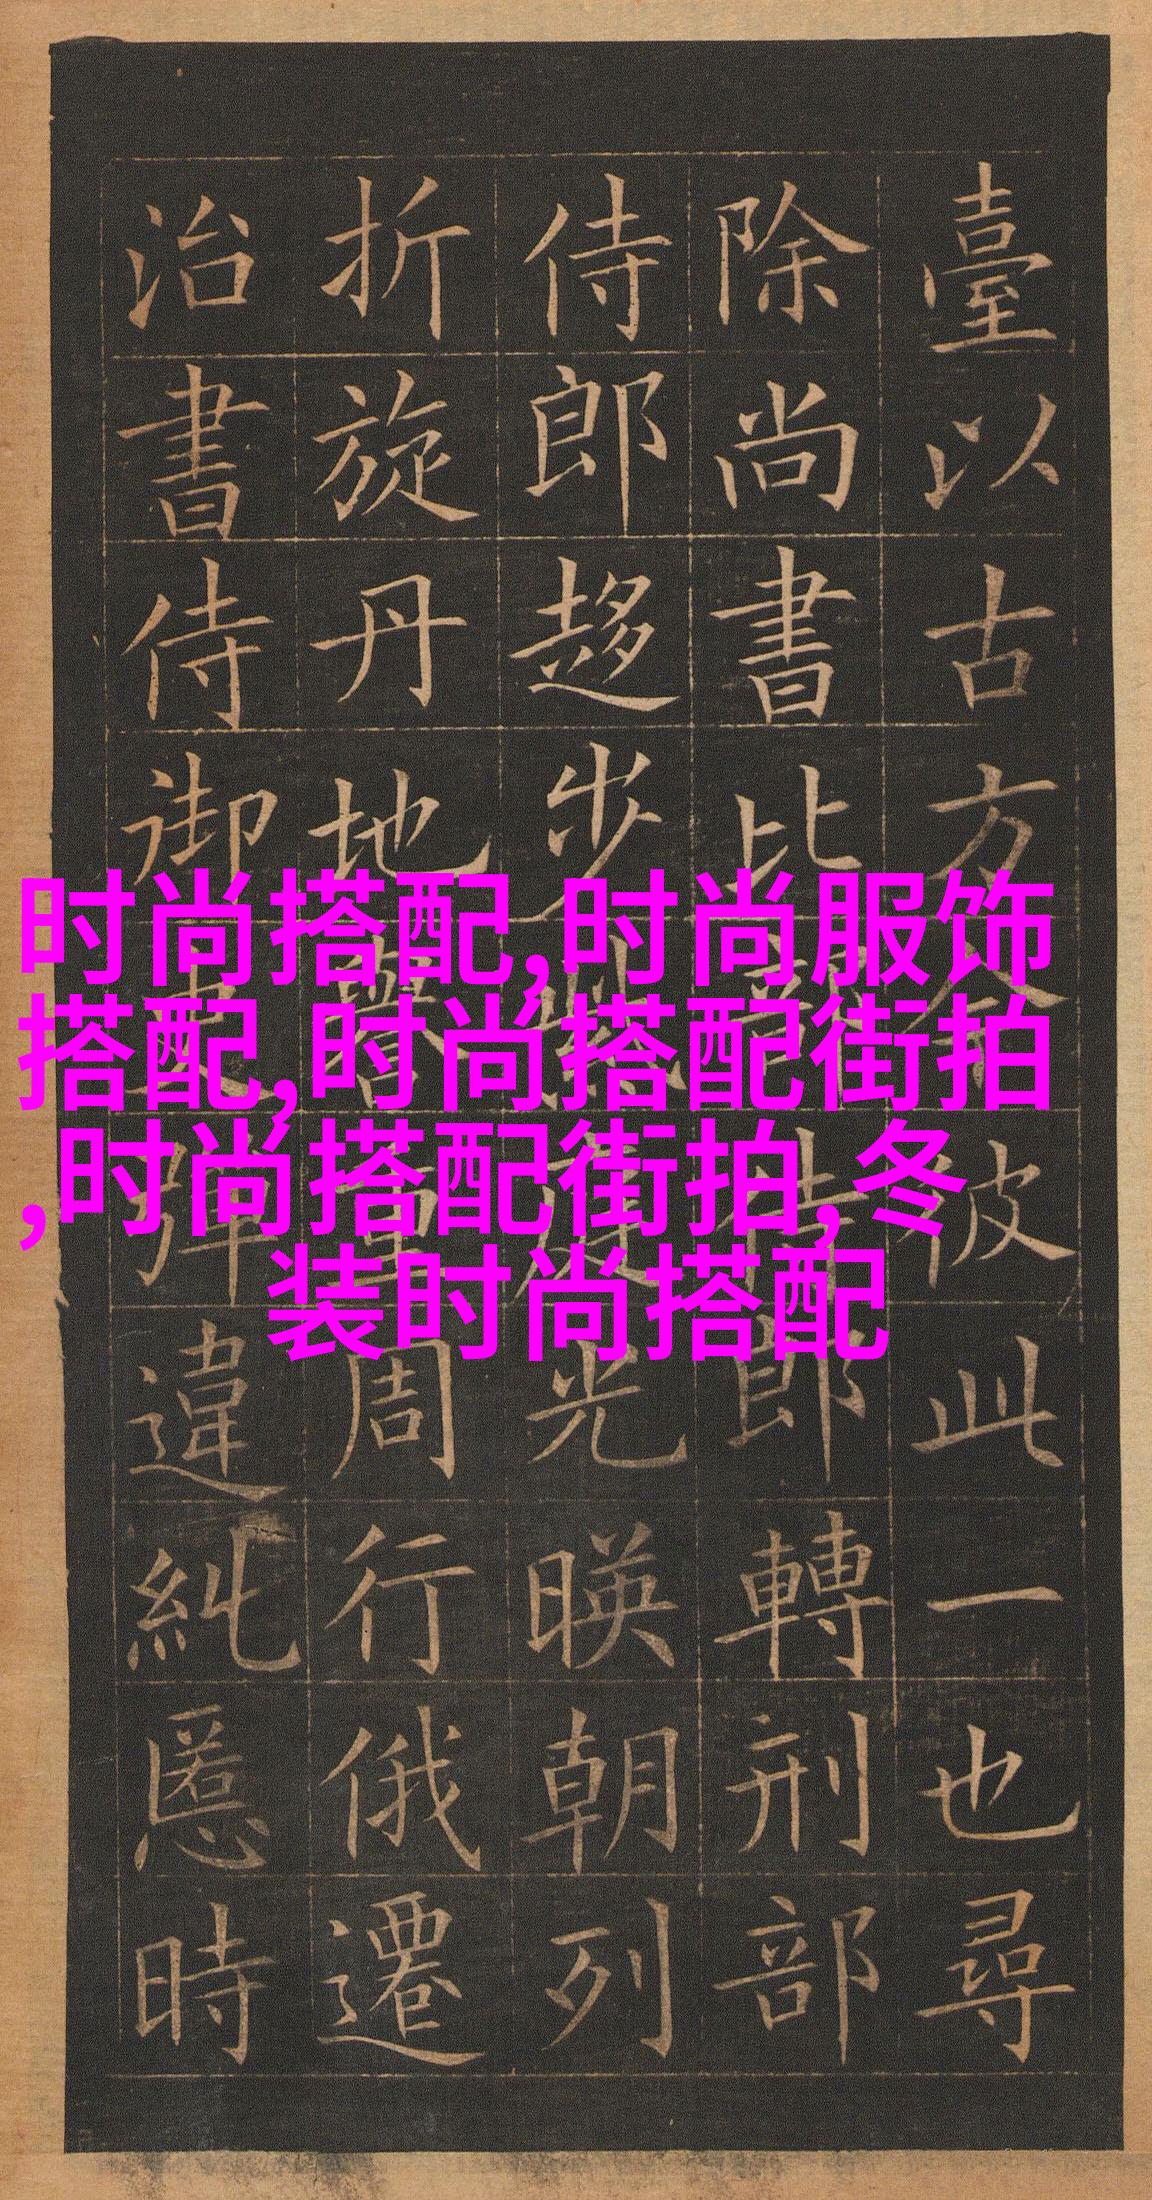 臺以古方今彼此一也尋
除尚書比部侍郎轉刑部
侍郎趍步紫庭光暎朝列
折旋丹地譽重周行俄遷
治書侍御史彈違糺慝時
时尚搭配,时尚服饰
搭配,时尚搭配街拍
,时尚搭配街拍,冬
装时尚搭配